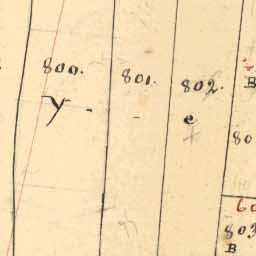 800.
801.
802.
y
e
B
80
60
803
B